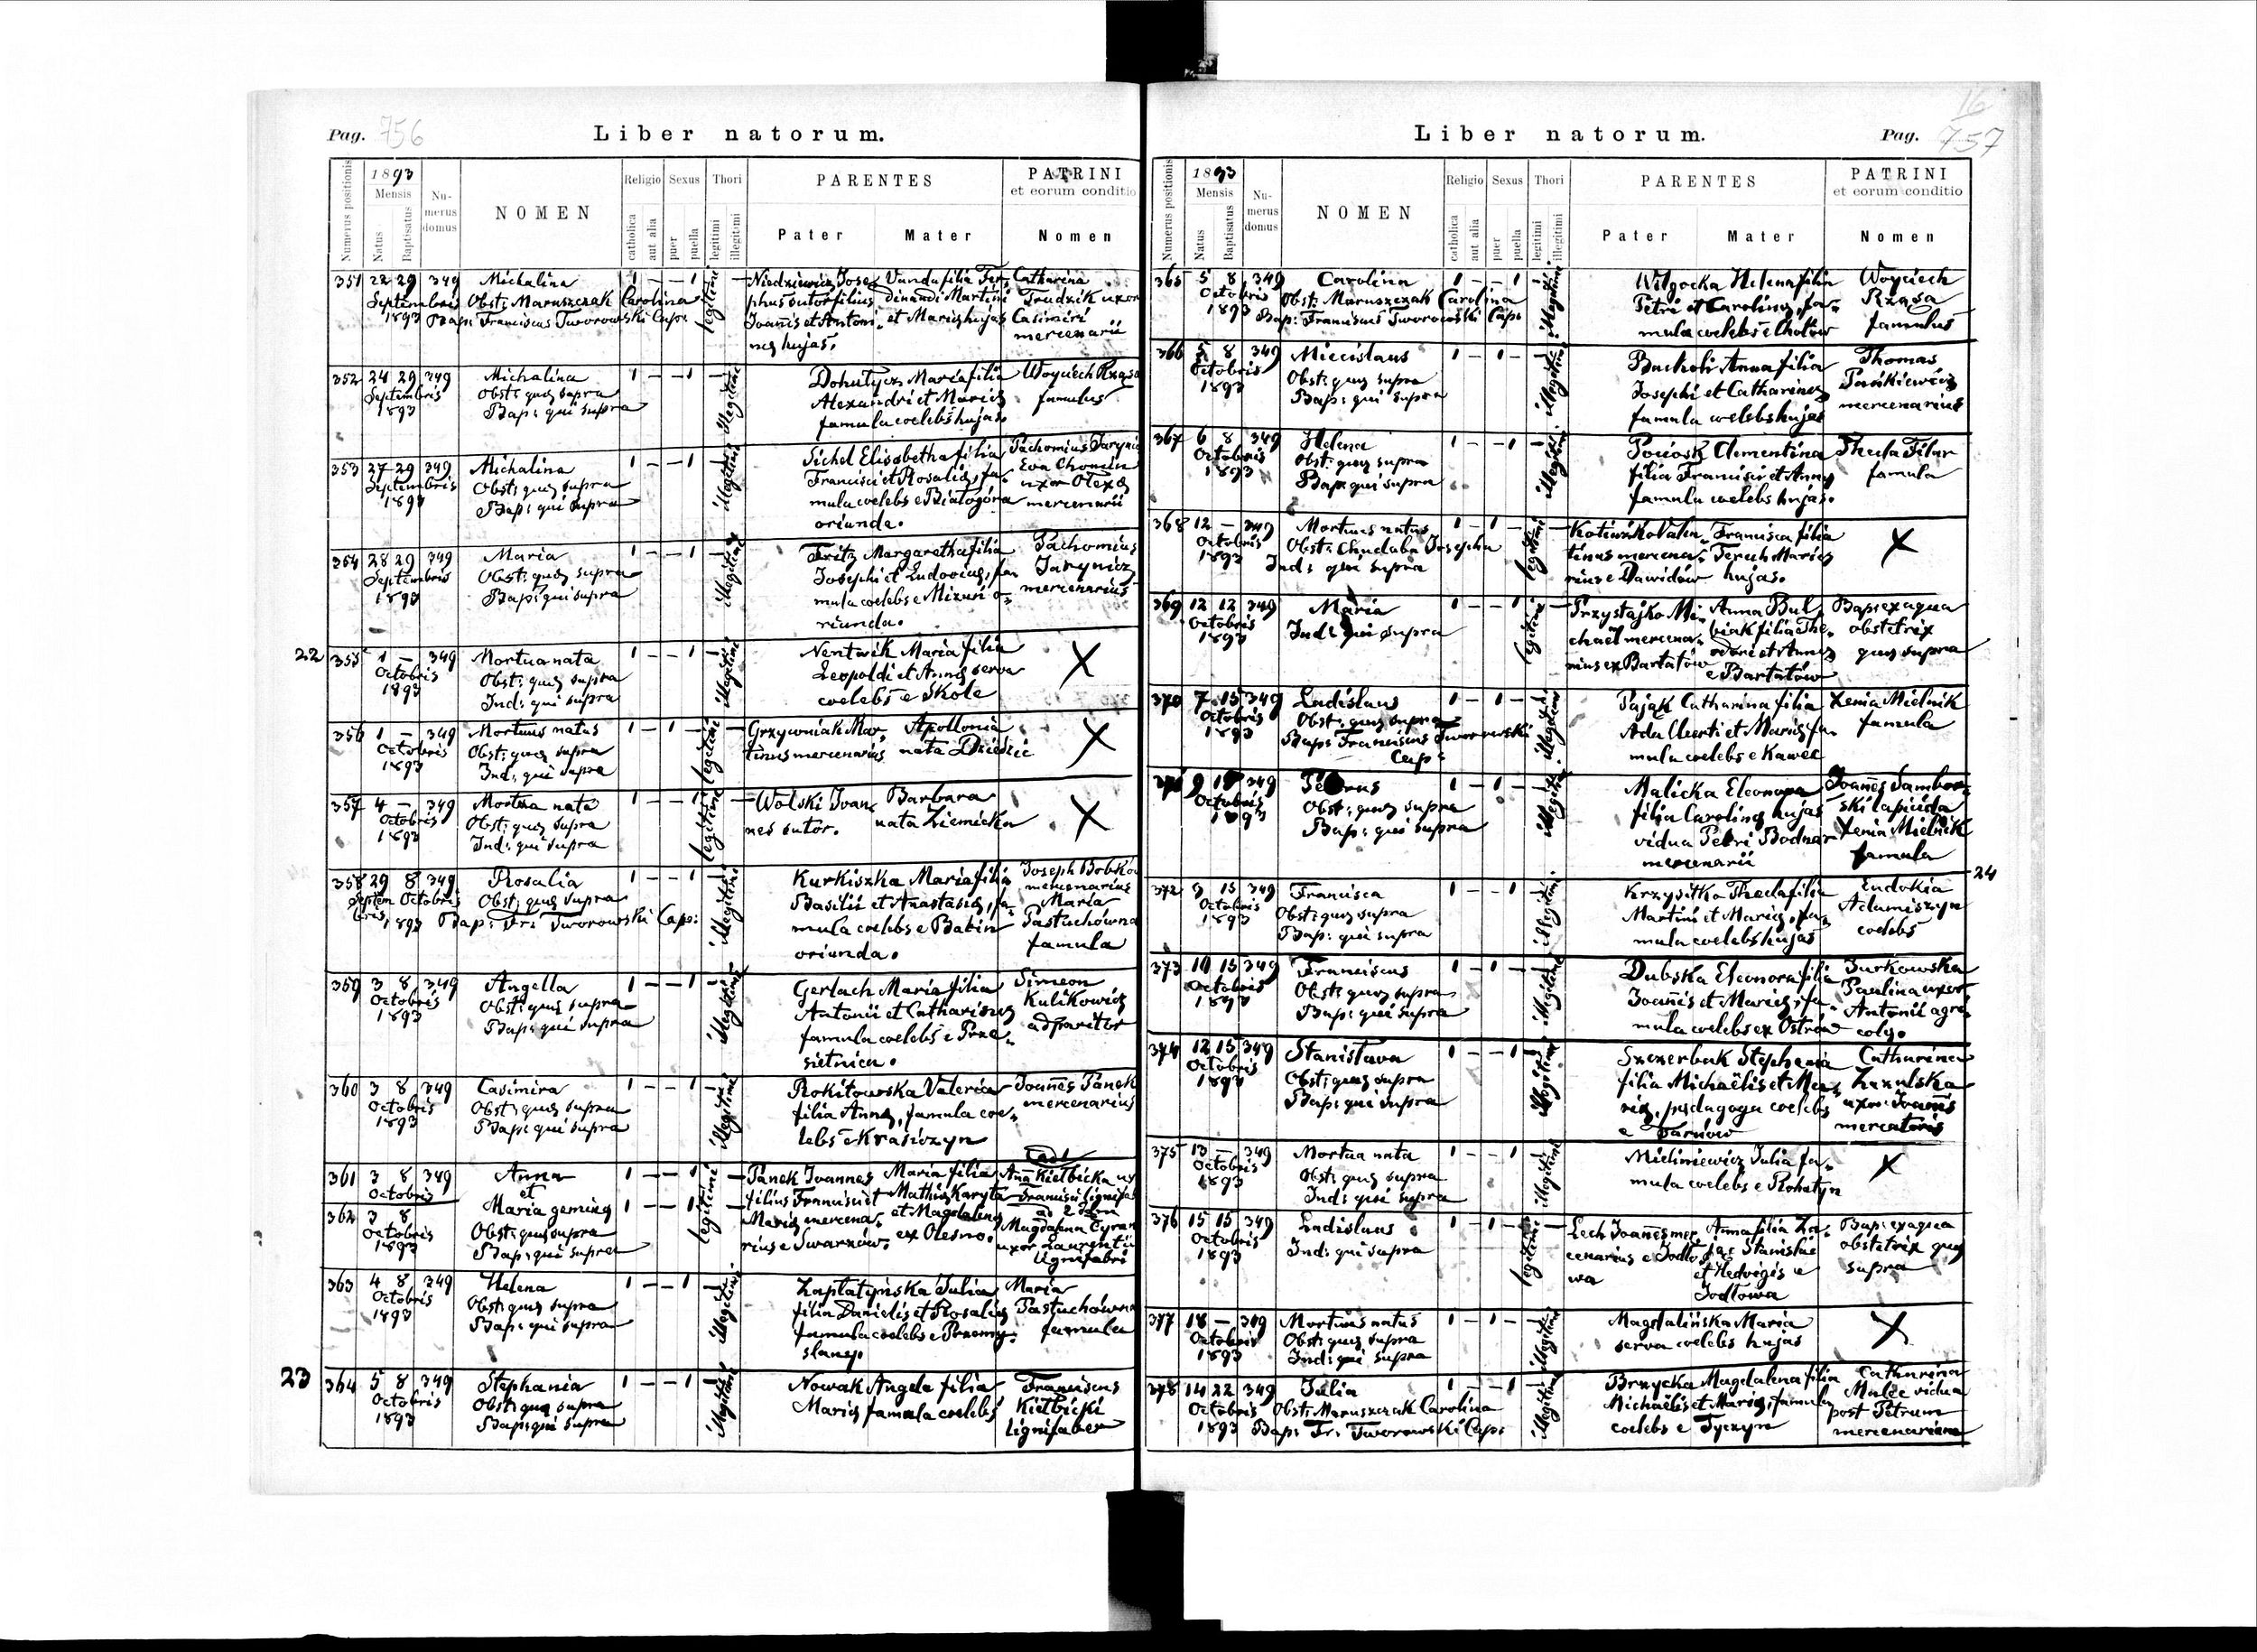 Pag. 756
Liber natorum.
1893
Numerus positionis
Mensis
Natus
Baptisatus
Numerus domus
NOMEN
Religio
catholica
aut alia
Sexus
puer
puella
Thori
legitimi
illegitimi
PARENTES
Pater
Mater
PATRINI
et eorum conditio
Nomen
351 22 29 349 Michalina 1 – – 1 legitimi – Niedzwiecz Jose- Vanda filia Fer- Catharina
Septembris Obst: Maruszczak Carolina phus sutor filius dinandi Martini Trudzik uxor
1893 Bap: Franciscus Tworowski Cap: Joañis et Antoni- et Mariæ hujas Casimiri
næ hujas. mercenarii
352 24 29 349 Michalina 1 – – 1 – illegitimi Dohutycz Maria filia Woyciech Rząsa
Septembris Obst: quæ supra Alexandri et Mariæ famulus
1893 Bap: qui supra famula coelebs hujas.
353 27 29 349 Michalina 1 – – 1 – illegitimi Sichel Elisabetha filia Pachomius Jarynicz
Septembris Obst: quæ supra Francisci et Rosaliæ, fa- Eva Chomin
1893 Bap: qui supra mula coelebs e Białogóra uxor Olexæ
oriunda. mercenarii
354 28 29 349 Maria 1 – – 1 – illegitimi Fritz Margaretha filia Pachomius
Septembris Obst: quæ supra Josephi et Ludovicæ, fa- Jarynicz
1893 Bap: qui supra mula coelebs e Mizuń o- mercenarius
riunda.
22
355 1 – 349 Mortua nata 1 – – 1 – illegitimi Nentwik Maria filia X
Octobris Obst: quæ supra Leopoldi et Annæ serva
1893 Ind: qui supra coelebs e Skole
356 1 – 349 Mortuus natus 1 – 1 – legitimi – Grzywniak Mar- Apollonia X
Octobris Obst: quæ supra tinus mercenarius nata Dziedzic
1893 Ind: qui supra
357 4 – 349 Mortua nata 1 – – 1 legitimi – Wolski Joan- Barbara X
Octobris Obst: quæ supra nes sutor. nata Ziemicka
1893 Ind: qui supra
358 29 8 349 Rosalia 1 – – 1 – illegitimi Kurkiszka Maria filia Joseph Bobków
Septem Octobris Obst: quæ supra Basilii et Anastasiæ, fa- mercenarius
bris, 1893 Bap: Fr: Tworowski Cap: mula coelebs e Batin Maria
oriunda. Pastuchówna
famula
359 3 8 349 Angella 1 – – 1 – illegitimi Gerlach Maria filia Simeon
Octobris Obst: quæ supra Antonii et Catharinæ Kulikowicz
1893 Bap: qui supra famula coelebs e Prze- adparitor
sietnica.
360 3 8 349 Casimira 1 – – 1 – illegitimi Rokitowska Valeria Joañes Pánek
Octobris Obst: quæ supra filia Annæ, famula coe- mercenarius
1893 Bap: qui supra lebs e Krasiczyn
361 3 8 349 Anna 1 – – 1 legitimi – Pánek Joannes Maria filia Aña Kiełbicka ux
Octobris et filius Francisci et Mathiæ Karyta Francisci lignifab
362 3 8 Maria geminæ 1 – – 1 – Mariæ mercena- et Magdalenæ ad 2dam
Octobris Obst: quæ supra rius e Swarzów. ex Olesno. Magdalena Cyran
1893 Bap: qui supra uxor Laurentii
lignifabri
363 4 8 349 Helena 1 – – 1 – illegitimi Zaplatyńska Julia Maria
Octobris Obst: quæ supra filia Danielis et Rosaliæ Pastuchówna
1893 Bap: qui supra famula coelebs e Przemy- famula
slany.
23
364 5 8 349 Stephania 1 – – 1 – illegitimi Nowak Angela filia Franciscus
Octobris Obst: quæ supra Mariæ famula coelebs Kiełbicki
1893 Bap: qui supra lignifaber
16
Liber natorum.
Pag. 757
1893
Numerus positionis
Mensis
Natus
Baptisatus
Numerus domus
NOMEN
Religio
catholica
aut alia
Sexus
puer
puella
Thori
legitimi
illegitimi
PARENTES
Pater
Mater
PATRINI
et eorum conditio
Nomen
365 5 8 349 Carolina 1 – – 1 – illegitimi Wilgocka Helena filia Woyciech
Octobris Obst: Maruszczak Carolina Petri et Carolinæ, fa- Rząsa
1893 Bap: Franciscus Tworowski Cap: mula coelebs e Chotów famulus
366 5 8 349 Miecislaus 1 – 1 – – illegitimi Bucholz Anna filia Thomas
Octobris Obst: quæ supra Josephi et Catharinæ Pańkiewicz
1893 Bap: qui supra famula coelebs hujas mercenarius
367 6 8 349 Helena 1 – – 1 – illegitimi Pociosk Clementina Thecla Filar
Octobris Obst: quæ supra filia Francisci et Annæ famula
1893 Bap: qui supra famula coelebs hujas.
368 12 – 349 Mortuus natus 1 – 1 – legitimi – Kotiuszko Valen- Francisca filia X
Octobris Obst: Chudoba Josepha tinus mercena- Terech Mariæ
1893 Ind: qui supra rius e Dawidów hujas.
369 12 12 349 Maria 1 – – 1 legitimi – Przystajko Mi- Anna Bul- Bap: ex aqua
Octobris Ind: qui supra chael mercena- biak filia The- obstetrix
1893 rius ex Bartatów odori et Annæ quæ supra
e Bartatów
370 7 15 349 Ladislaus 1 – 1 – – illegitimi Pająk Catharina filia Xenia Mielnik
Octobris Obst: quæ supra Adalberti et Mariæ fa- famula
1893 Bap: Franciscus Tworowski mula coelebs e Kawec
Cap:
371 9 15 349 Petrus 1 – 1 – – illegitimi Malicka Eleonora Joañes Sambor-
Octobris Obst: quæ supra filia Carolinæ hujas ski lapicida
1893 Bap: qui supra vidua Petri Bodnar Xenia Mielnik
mercenarii famula
24
372 9 15 349 Francisca 1 – – 1 – illegitimi Krzysitka Thecla filia Eudokia
Octobris Obst: quæ supra Martini et Mariæ, fa- Adamiszyn
1893 Bap: qui supra mula coelebs hujas coelebs
373 10 15 349 Franciscus 1 – 1 – – illegitimi Dubska Eleonora filia Żurkowska
Octobris Obst: quæ supra Joañis et Mariæ, fa- Paulina uxor
1893 Bap: qui supra mula coelebs ex Ostrów Antonii agri-
colæ.
374 12 15 349 Stanisłava 1 – – 1 – illegitimi Szczerbak Stephania Catharina
Octobris Obst: quæ supra filia Michaëlis et Ma- Zazulska
1893 Bap: qui supra riæ, pedagoga coelebs uxor Joañis
e Tarnów mercatoris
375 13 – Mortua nata 1 – – 1 – illegitimi Mieliniewicz Julia fa- X
Octobris Obst: quæ supra mula coelebs e Rohatyn
1893 Ind: qui supra
376 15 15 349 Ladislaus 1 – 1 – legitimi – Lech Joañes mer- Anna filia Za- Bap: ex aqua
Octobris Ind: qui supra cenarius e Jodło- jąc Stanislai obstetrix quæ
1893 wa et Hedvigis e supra
Jodłowa
377 18 – 349 Mortuus natus 1 – 1 – – illegitimi Magdalińska Maria X
Octobris Obst: quæ supra serva coelebs hujas
1893 Ind: qui supra
378 14 22 349 Julia 1 – – 1 – illegitimi Brzycka Magdalena filia Catharina
Octobris Obst: Maruszczak Carolina Michaëlis et Mariæ, famula Malec vidua
1893 Bap: Fr: Tworowski Cap: coelebs e Tyczyn post Petrum
mercenarium